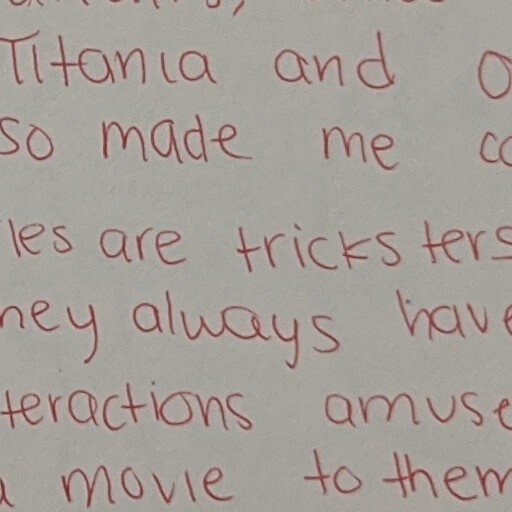 Titania and O
so made me co
les are tricksters
hey always have
teractions amuse
a movie to them